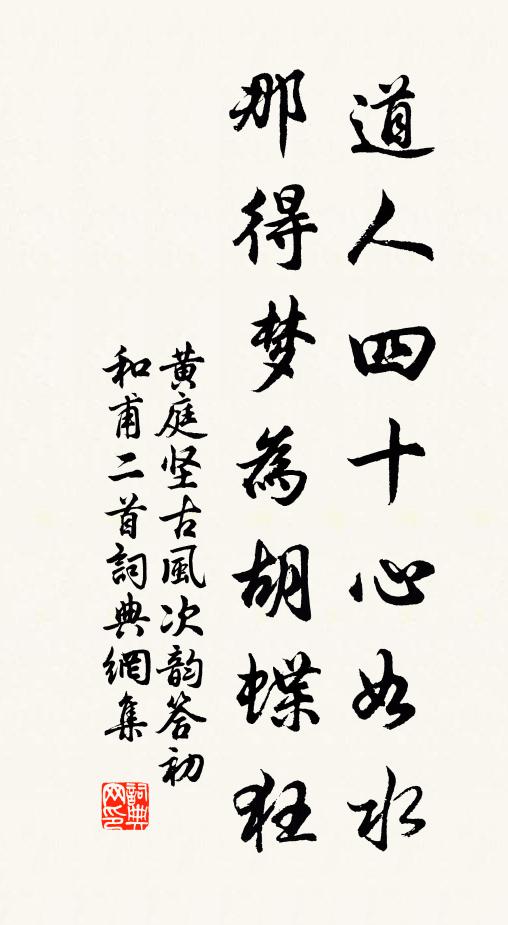 道人四十心如水
那得梦為胡蝶狂
黄庭坚古風次韵答初
和甫二首詞典網集
詞典网印